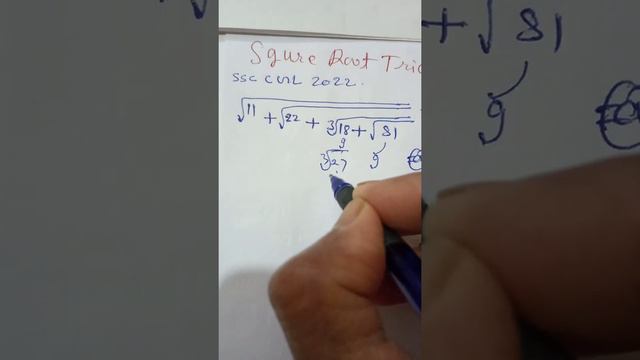 Sgure Root Tric
SSC CHSL 2022.
√11 + √22 + ∛18 + √81
9
∛27 9
+ √81
9